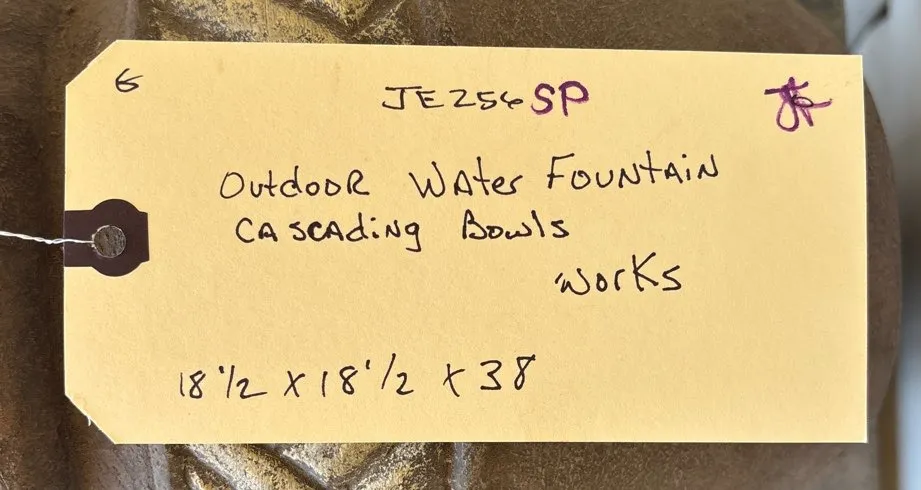 G
JE256 SP
Outdoor Water Fountain
Cascading Bowls
Works
18 1/2 x 18 1/2 x 38